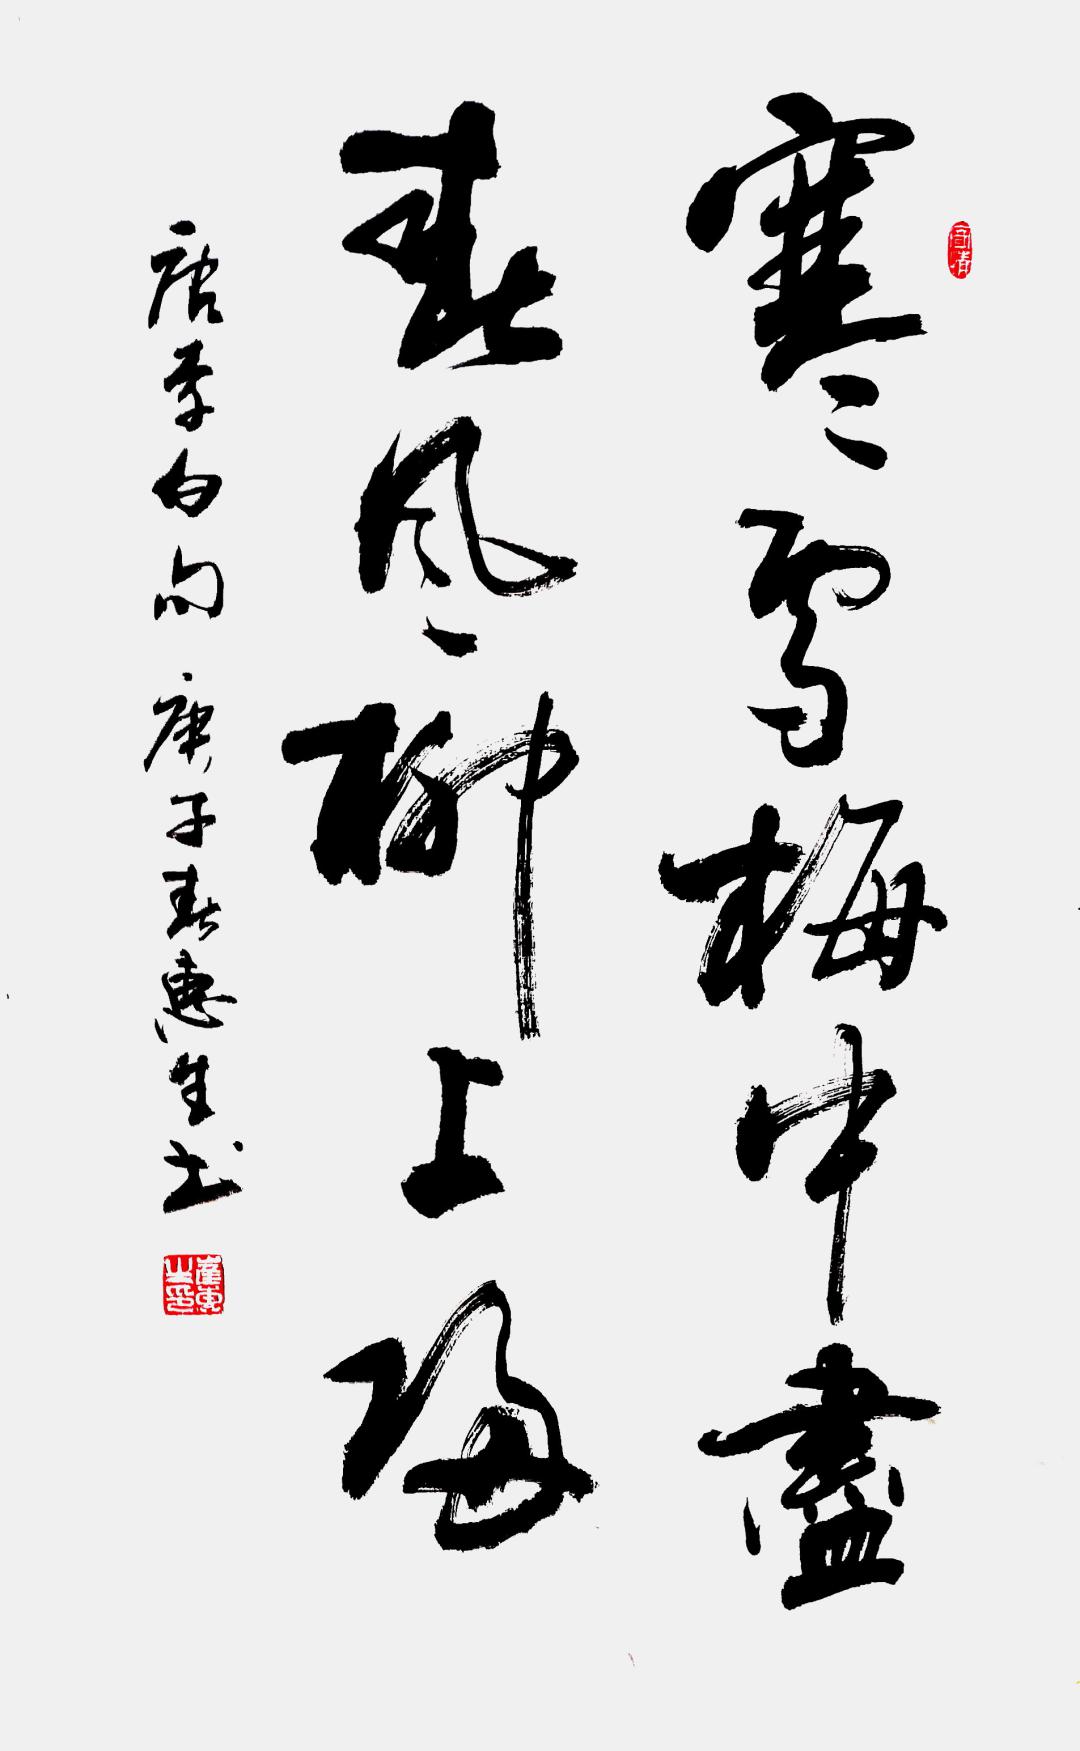 寒雪梅中盡
春風柳上歸
唐李白句 庚子春惠生书